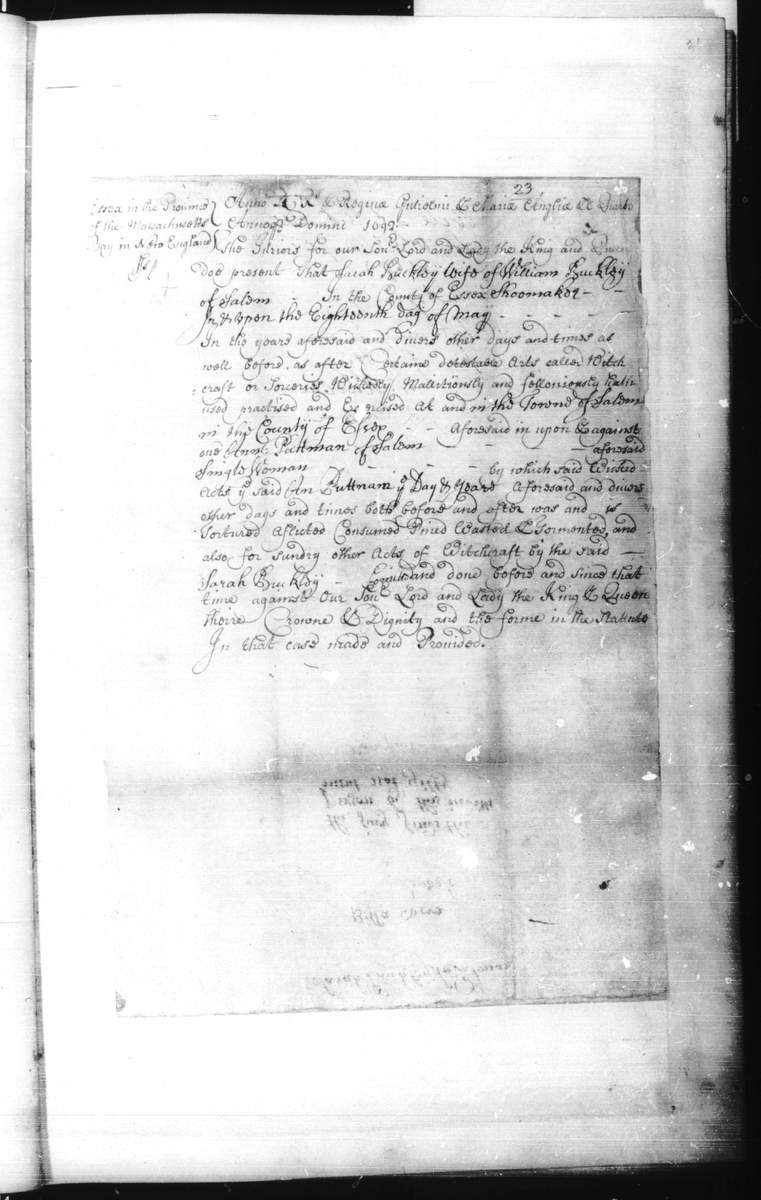 23
Essex in the Prouince
of the Massachusetts
Bay in New England
ss
Anno R Rs & Reginæ Gulielmi & Mariæ Angliæ &c Quarto
Annoq. Domini 1692
The Juriors for our Soue Lord and Lady the King and Queen
doe present That Sarah Buckley Wife of William Buckley
of Salem - In the County of Essex Shoomaker - -
In & Upon the Eighteenth day of May - - - - -
In the yeare aforesaid and divers other days and times as
well before, as after Certaine detestable Arts called Witch
craft or Sorceries Wickedly Mallitiously and felloniously hath
used practised and Exercised At and in the Towne of Salem
in the County of Essex - - Aforesaid in upon & against
one Ann Puttman of Salem - - - aforesaid
Single Woman - - - - by which said Wicked
Acts ye said Ann Puttnam ye Day & Yeare Aforesaid and divers
other days and times both before and after was and is
Tortured Aflicted Consumed Pined Wasted & Tormented, and
also for Sundry other Acts of Witchcraft by the said —
Sarah Buckley - Comitted and done before and since that
time against Our Soue Lord and Lady the King & Queen
theire Crowne & Dignity and the forme in the Statute
In that case made and Prouided.